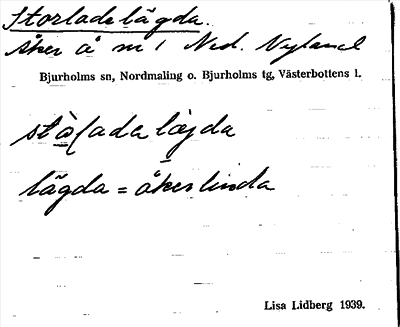 Storladelägda.
Åker å n:o 1 Ned. Nyland
Bjurholms sn, Nordmaling o. Bjurholms tg, Västerbottens l.
lägda = åkerlinda
Lisa Lidberg 1939.